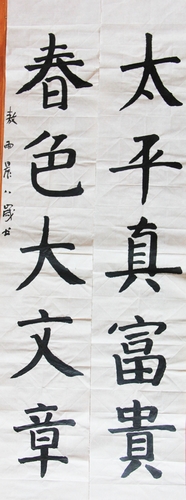 太平真富貴
春色大文章
敖雨晨八歲书